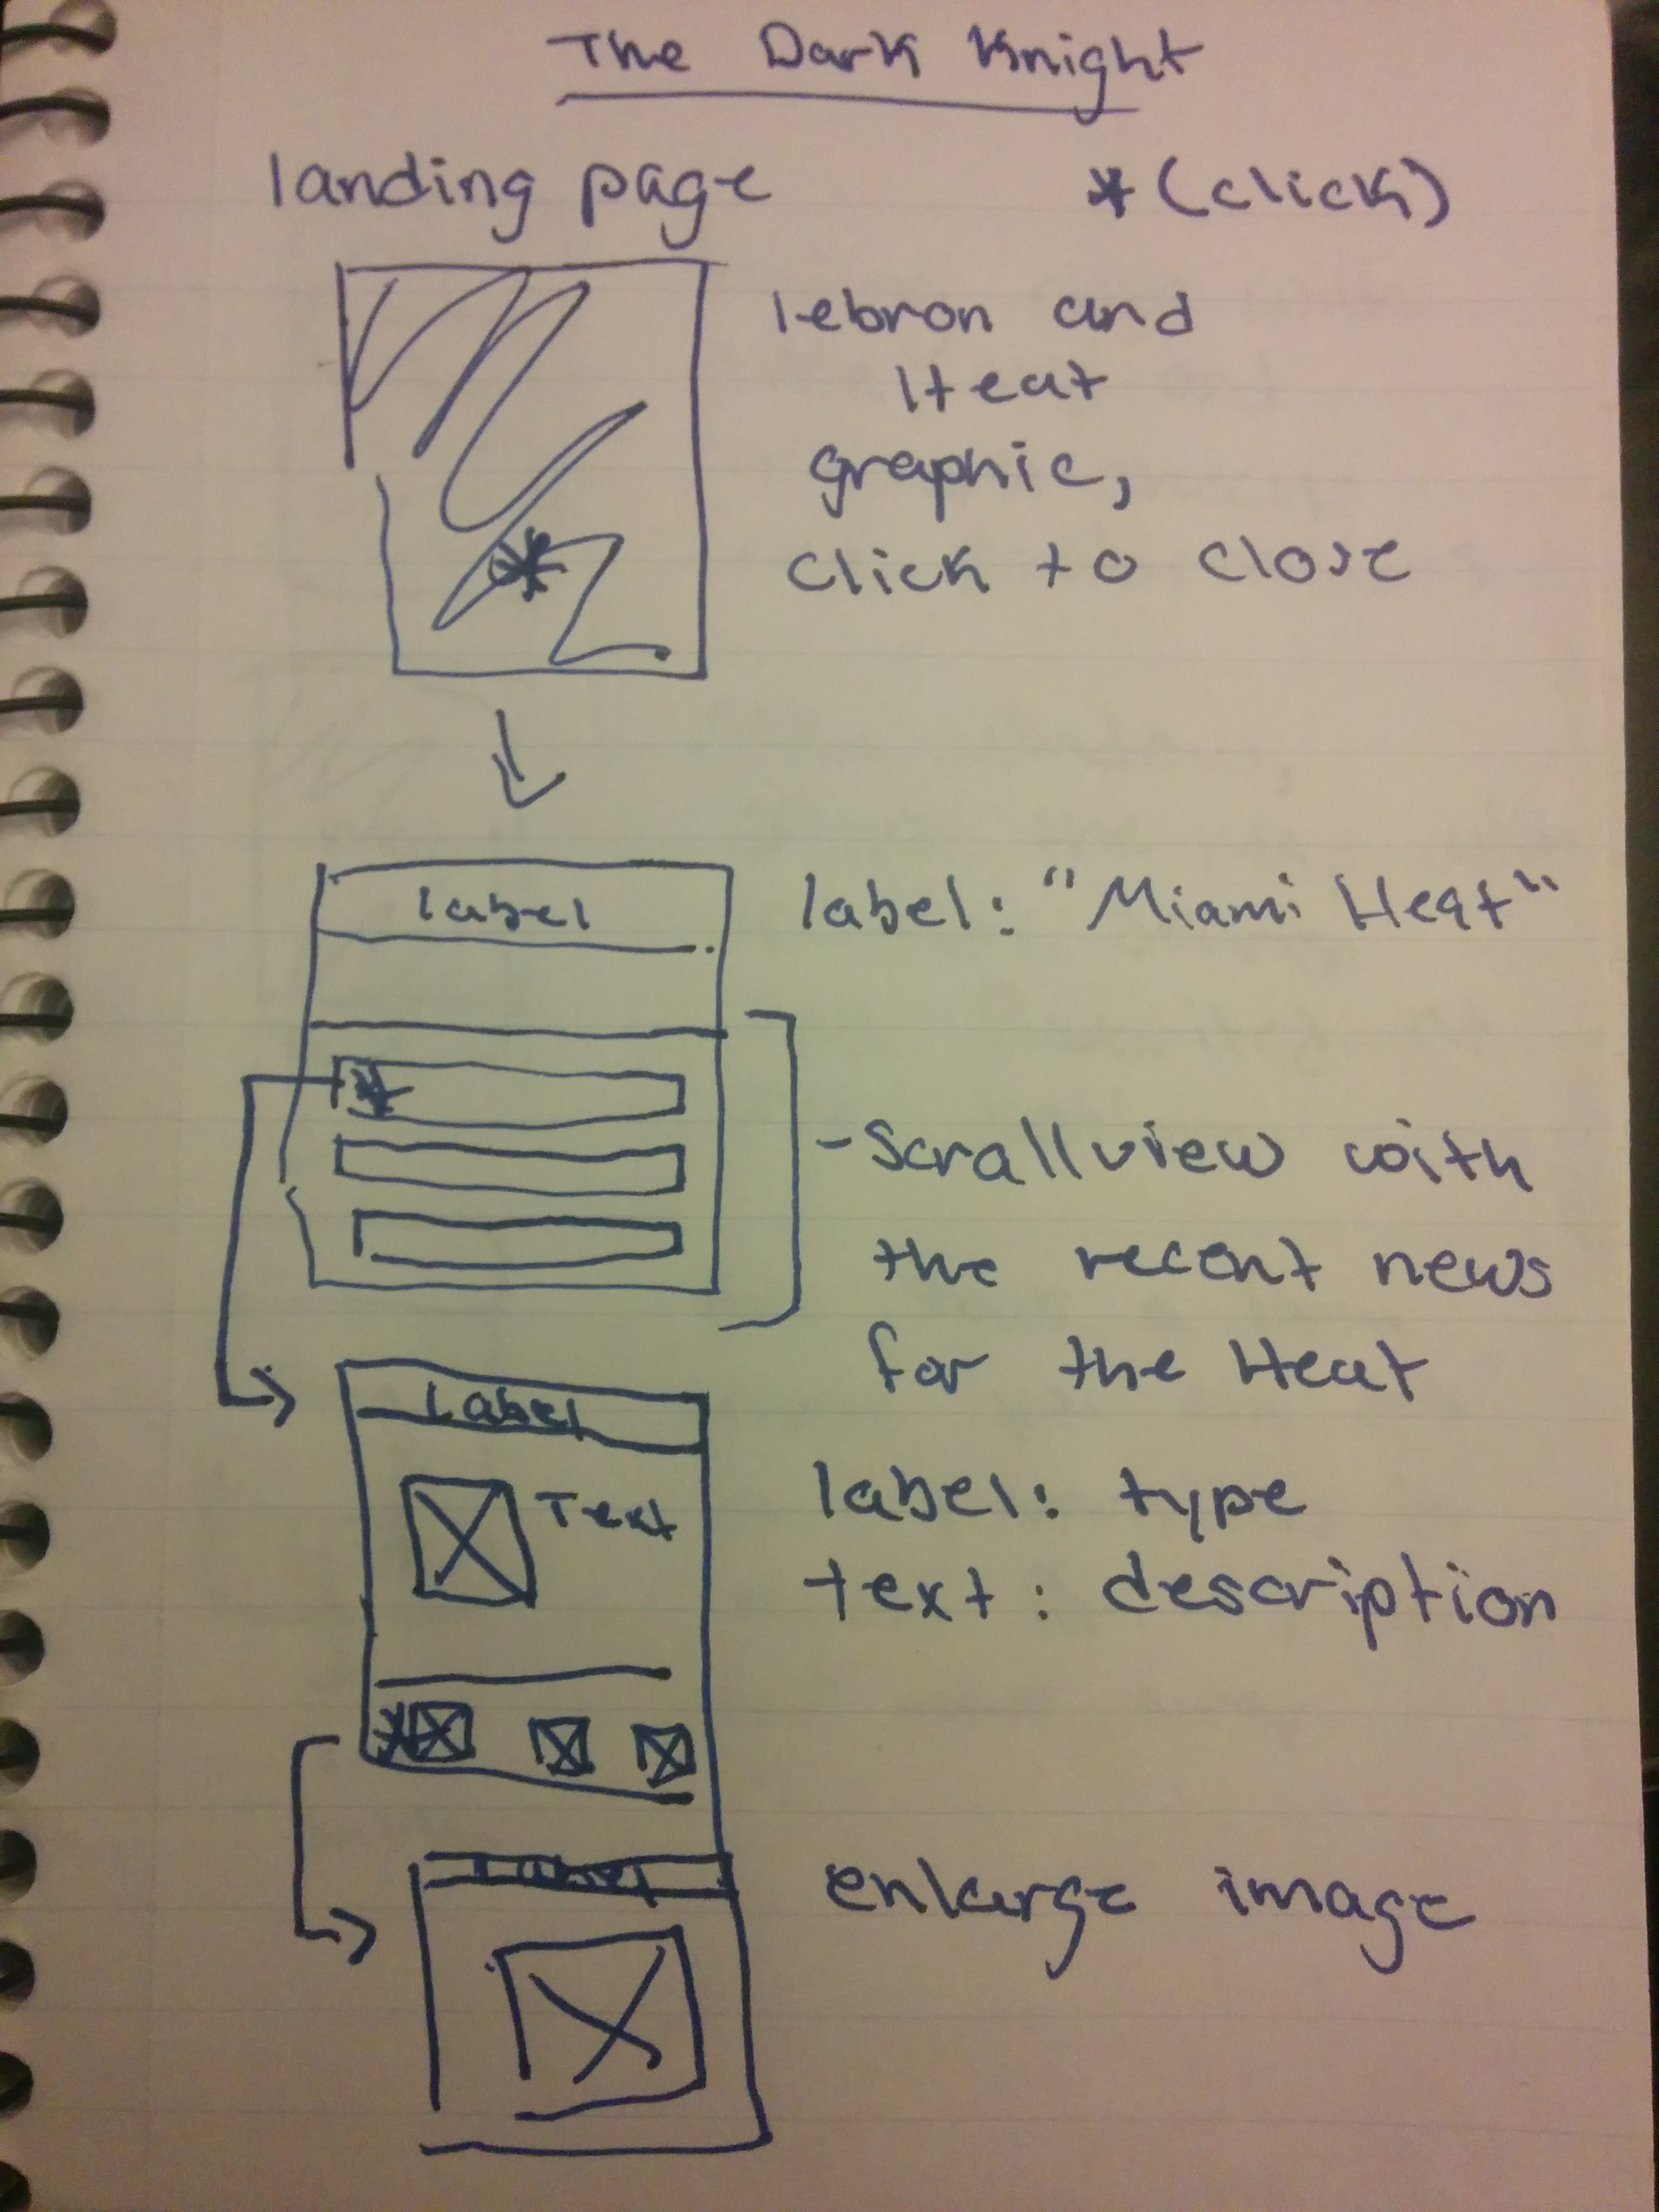 The Dark Knight
landing page *(click)
lebron and
Heat
graphic,
click to close
label
label: "Miami Heat"
-Scrollview with
the recent news
for the Heat
Label
Text
label: type
text: description
Label
enlarge image